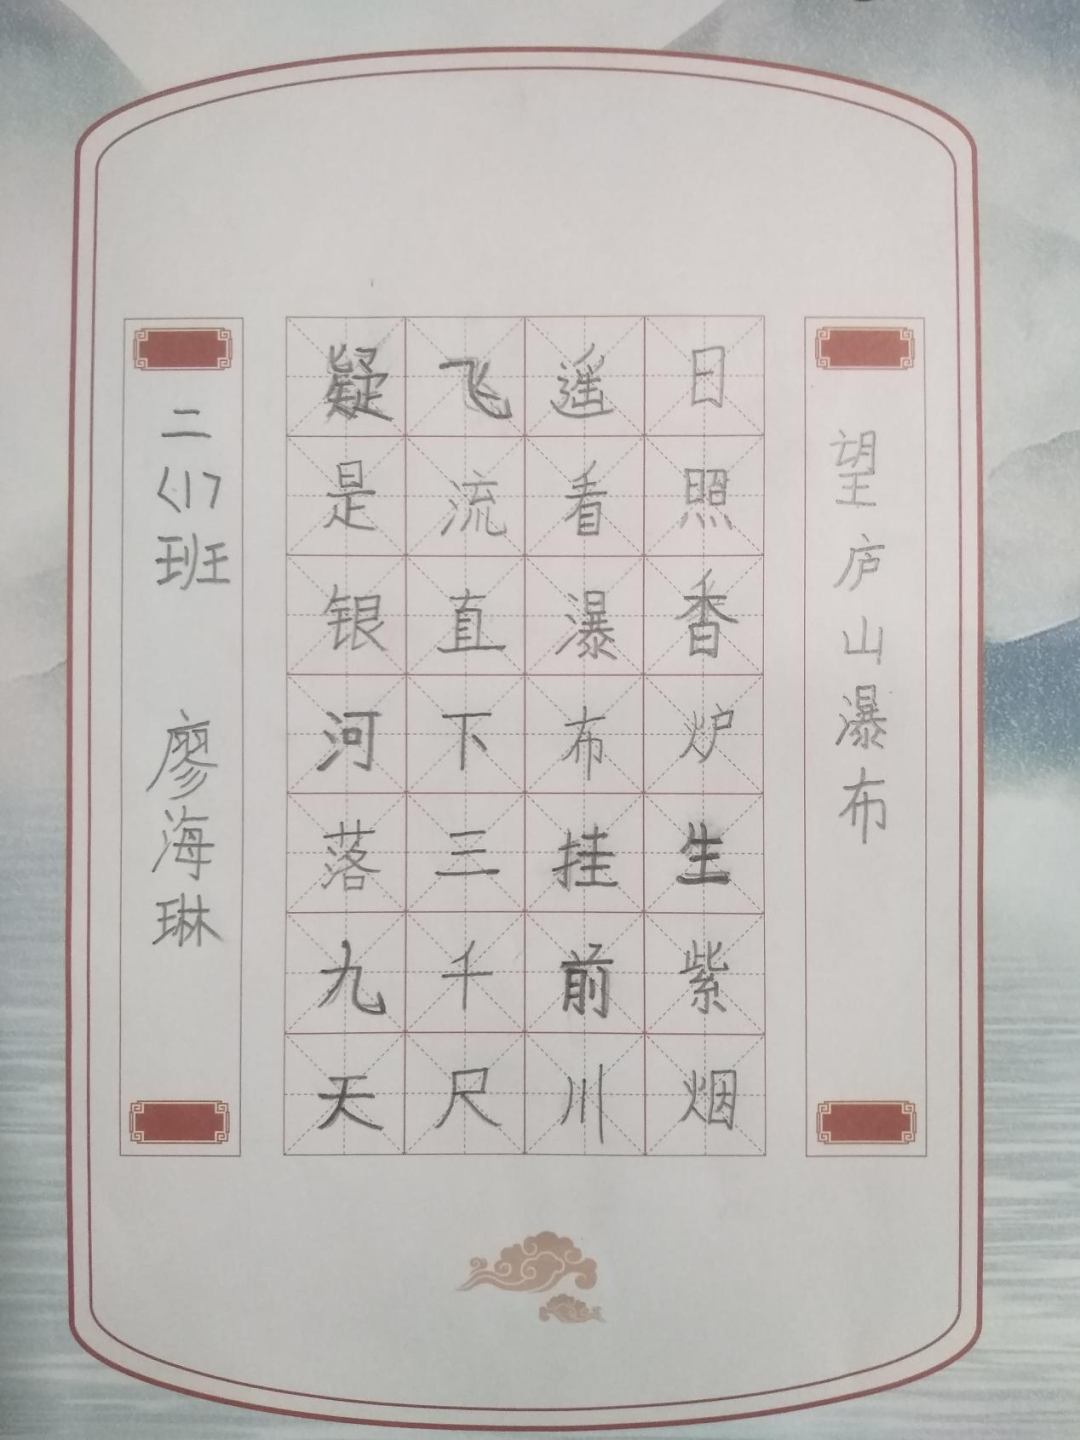 望庐山瀑布
日照香炉生紫烟
遥看瀑布挂前川
飞流直下三千尺
疑是银河落九天
二〈1〉班 廖海琳